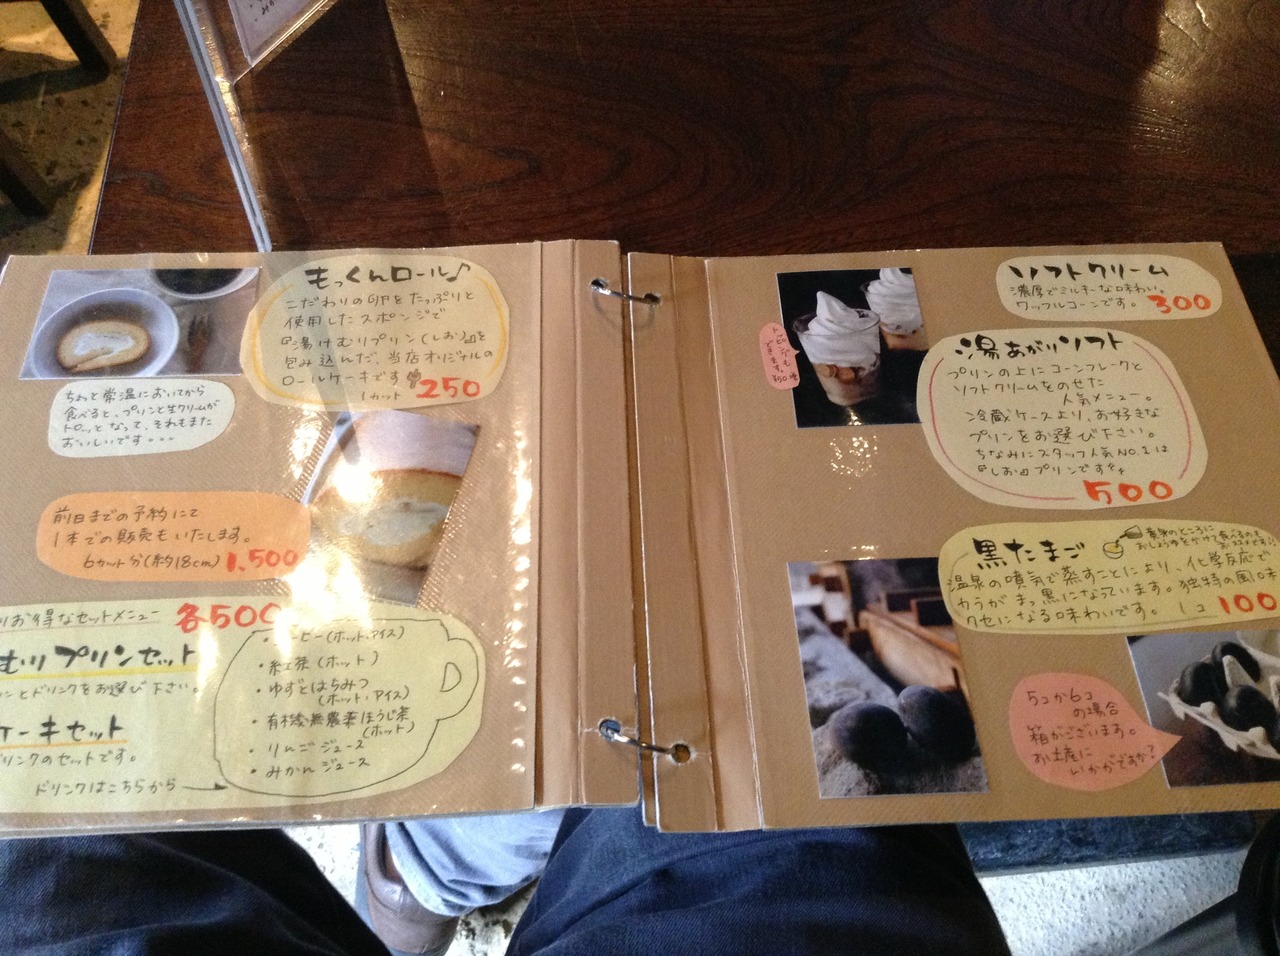 もっくんロール♪
こだわりの卵をたっぷりと
使用したスポンジで
『湯けむりプリン(しお)』を
包み込んだ、当店オリジナルの
ロールケーキです
1カット 250
ちょと常温においてから
食べると、プリンと生クリームが
トロッとなって、それもまた
おいしいです・・・
前日までの予約にて
1本での販売もいたします。
6カット分(約18cm) 1,500
お得なセットメニュー 各500
むりプリンセット
ンとドリンクをお選び下さい。
ケーキセット
リンクのセットです。
ドリンクはこちらから
・コーヒー(ホット、アイス)
・紅茶(ホット)
・ゆずとはちみつ
(ホット、アイス)
・有機無農薬ほうじ茶
(ホット)
・りんごジュース
・みかんジュース
ソフトクリーム
濃厚でミルキーな味わい。
ワッフルコーンです。 300
トッピングも
できます。
湯あがりソフト
プリンの上にコーンフレークと
ソフトクリームをのせた
人気メニュー。
冷蔵ケースより、お好きな
プリンをお選び下さい。
ちなみにスタッフ人気NO.1は
『しお』プリンです
500
黒たまご
黄身のところに
おしょうゆをかけて食べるのも
おススメです
温泉の噴気で蒸すことにより、化学反応で
カラがまっ黒になっています。独特の風味
クセになる味わいです。 1コ 100
5コか6コ
の場合
箱がございます。
お土産に
いかがですか?